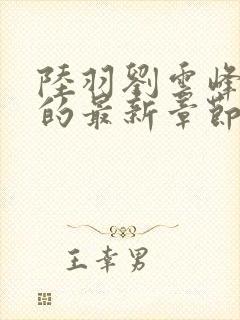 陸羽劉雲峰
的最新章節
王幸男